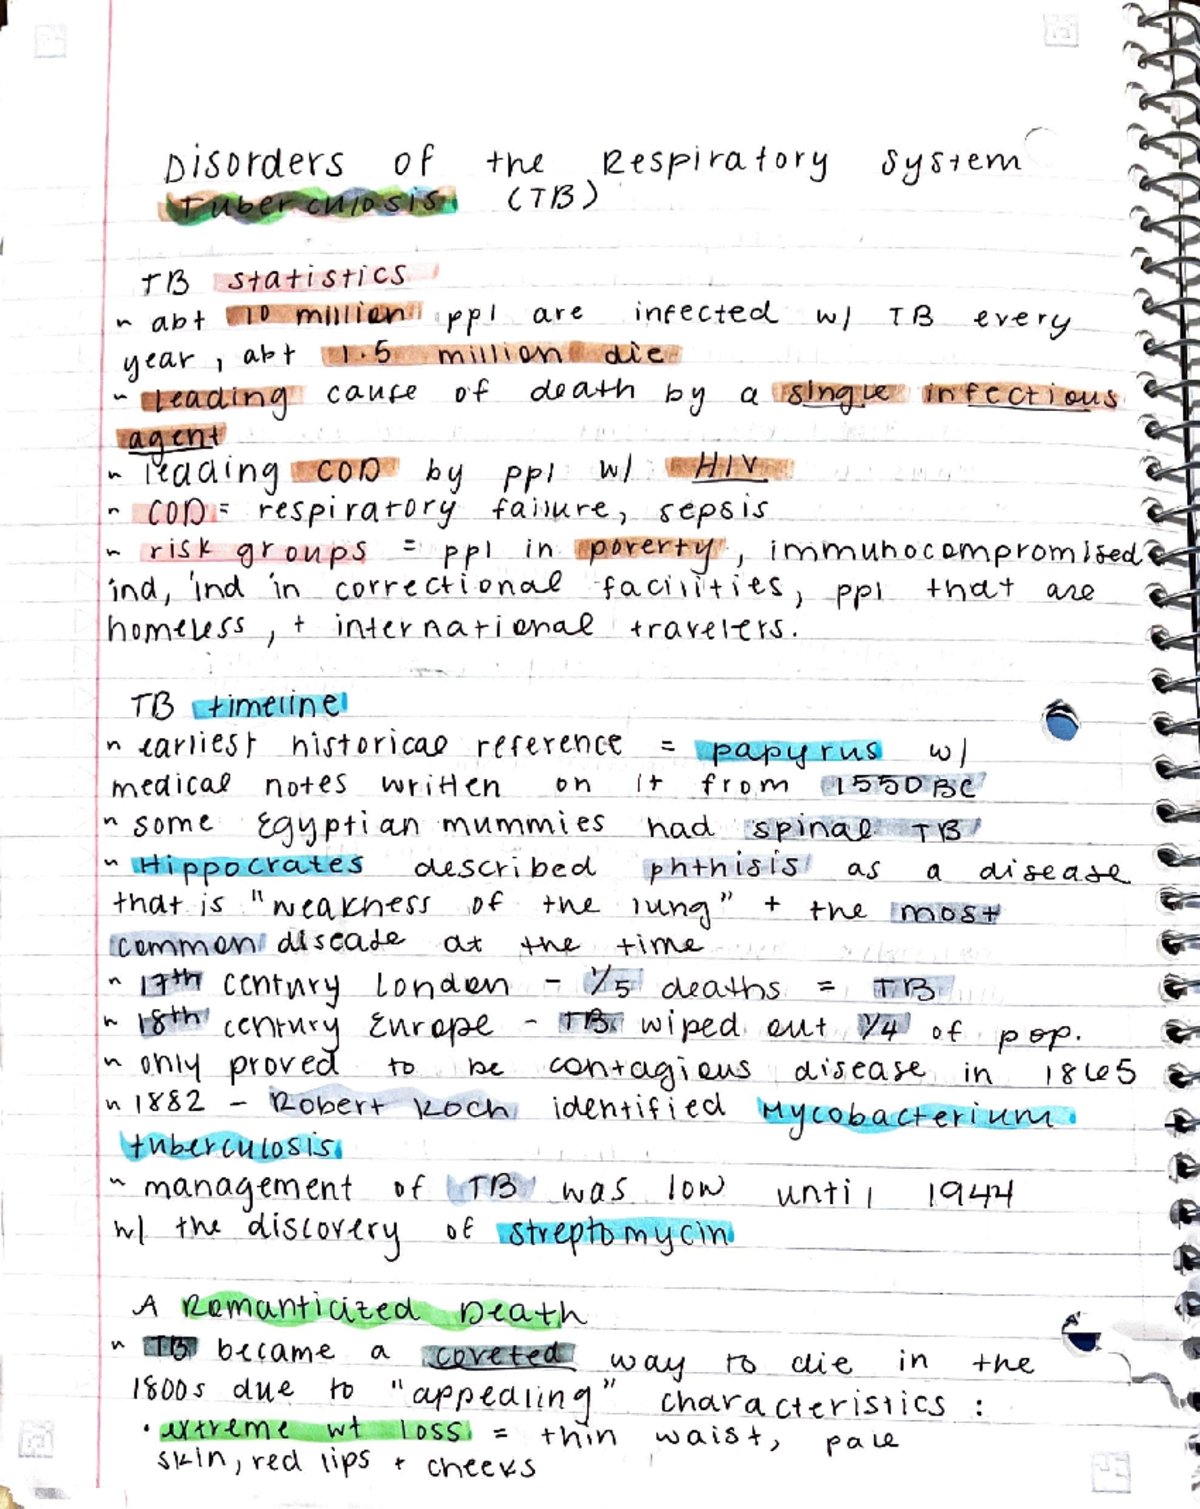 Disorders of the Respiratory System
Tuberculosis (TB)
TB statistics
~ abt 10 million ppl are infected w/ TB every
year, abt 1.5 million die
~ Leading cause of death by a single infectious
agent
~ leading COD by ppl w/ HIV
~ COD = respiratory failure, sepsis
~ risk groups = ppl in poverty, immunocompromised
ind, ind in correctional facilities, ppl that are
homeless, + international travelers.
TB timeline
~ earliest historical reference = papyrus w/
medical notes written on it from 1550 BC
~ some Egyptian mummies had spinal TB
~ Hippocrates described phthisis as a disease
that is "weakness of the lung" + the most
common disease at the time
~ 17th century London - 1/5 deaths = TB
~ 18th century Europe - TB wiped out 1/4 of pop.
~ only proved to be contagious disease in 1865
~ 1882 - Robert Koch identified Mycobacterium
tuberculosis
~ management of TB was low until 1944
w/ the discovery of streptomycin
A Romanticized Death
~ TB became a coveted way to die in the
1800s due to "appealing" characteristics :
· extreme wt loss = thin waist, pale
skin, red lips + cheeks